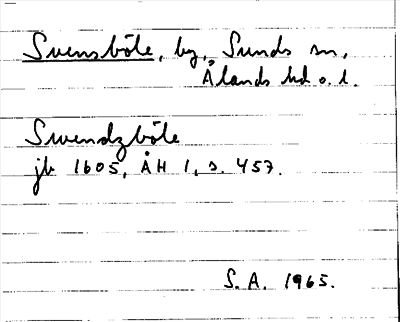 Svensböle, by, Sunds sn,
Ålands hd o. l.
Swendzböle
jb 1605, ÅH 1, s. 457.
S. A. 1965.